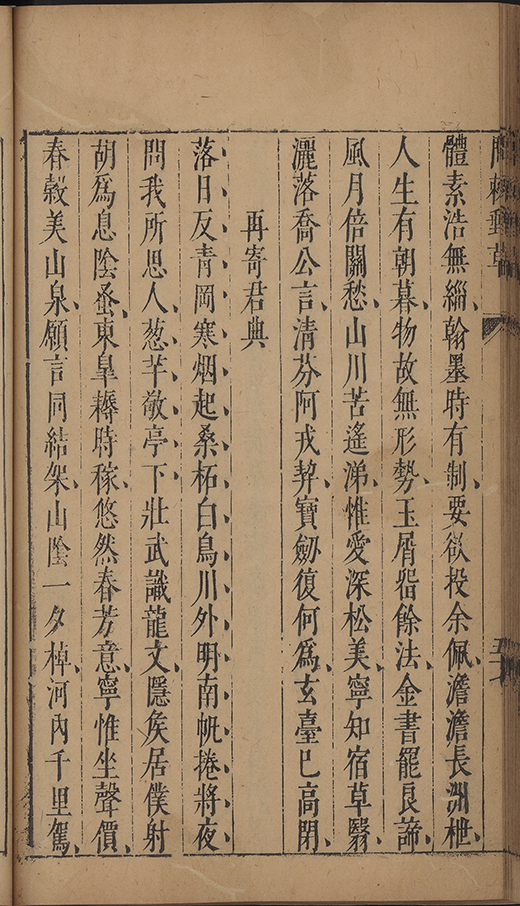 體素浩無緇翰墨時有制要欲投余佩澹澹長洲枻
人生有朝暮物故無形勢玉屑啓餘法金書罷良諦
風月倍關愁山川苦遙涕惟愛深松美寧知宿草翳
灑落喬公言清芬阿戎契寶劒復何爲玄臺巳高閉
再寄君典
落日反青岡寒烟起桑柘白鳥川外明南帆捲將夜
問我所思人葱芊敬亭下壯武識龍文隱矦居僕射
胡爲息陰蚤東臯耨時稼悠然春芳意寧惟坐聲價
春穀美山泉願言同結架山陰一夕棹河內千里駕